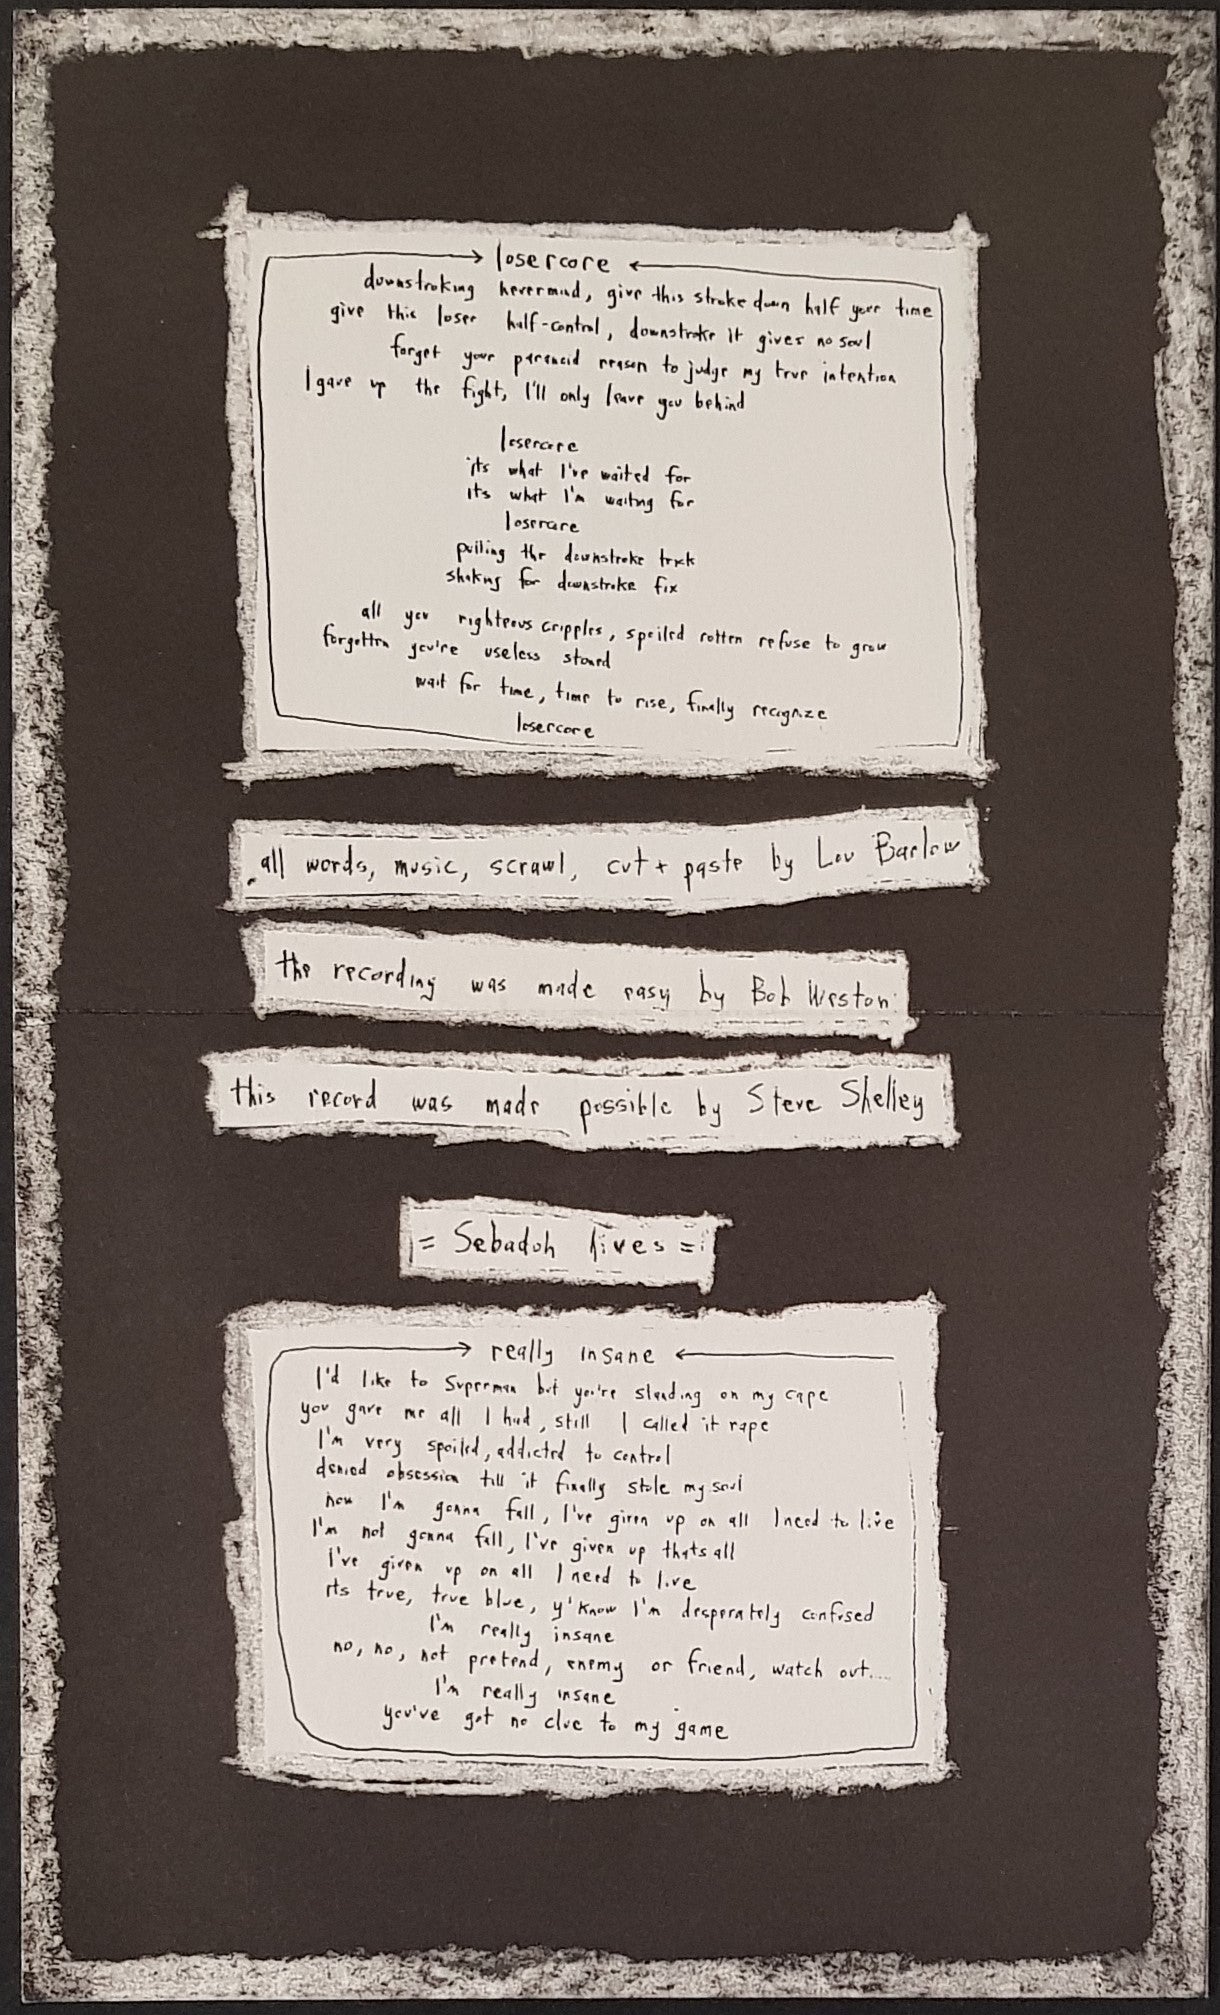 losercore
downstroking nevermind, give this stroke down half your time
give this loser half-control, downstroke it gives no soul
forget your paranoid reason to judge my true intention
I gave up the fight, I'll only leave you behind
losercore
its what I've waited for
its what I'm waiting for
losercore
pulling the downstroke trick
shaking for downstroke fix
all you righteous cripples, spoiled rotten refuse to grow
forgotten you're useless stoned
wait for time, time to rise, finally recognize
losercore
all words, music, scrawl, cut + paste by Lou Barlow
the recording was made easy by Bob Weston
this record was made possible by Steve Shelley
= Sebadoh lives =
really insane
I'd like to Superman but you're standing on my cape
you gave me all I had, still I called it rape
I'm very spoiled, addicted to control
denied obsession till it finally stole my soul
now I'm gonna fall, I've given up on all I need to live
I'm not gonna fall, I've given up thats all
I've given up on all I need to live
its true, true blue, y'know I'm desperately confused
I'm really insane
no, no, not pretend, enemy or friend, watch out....
I'm really insane
you've got no clue to my game